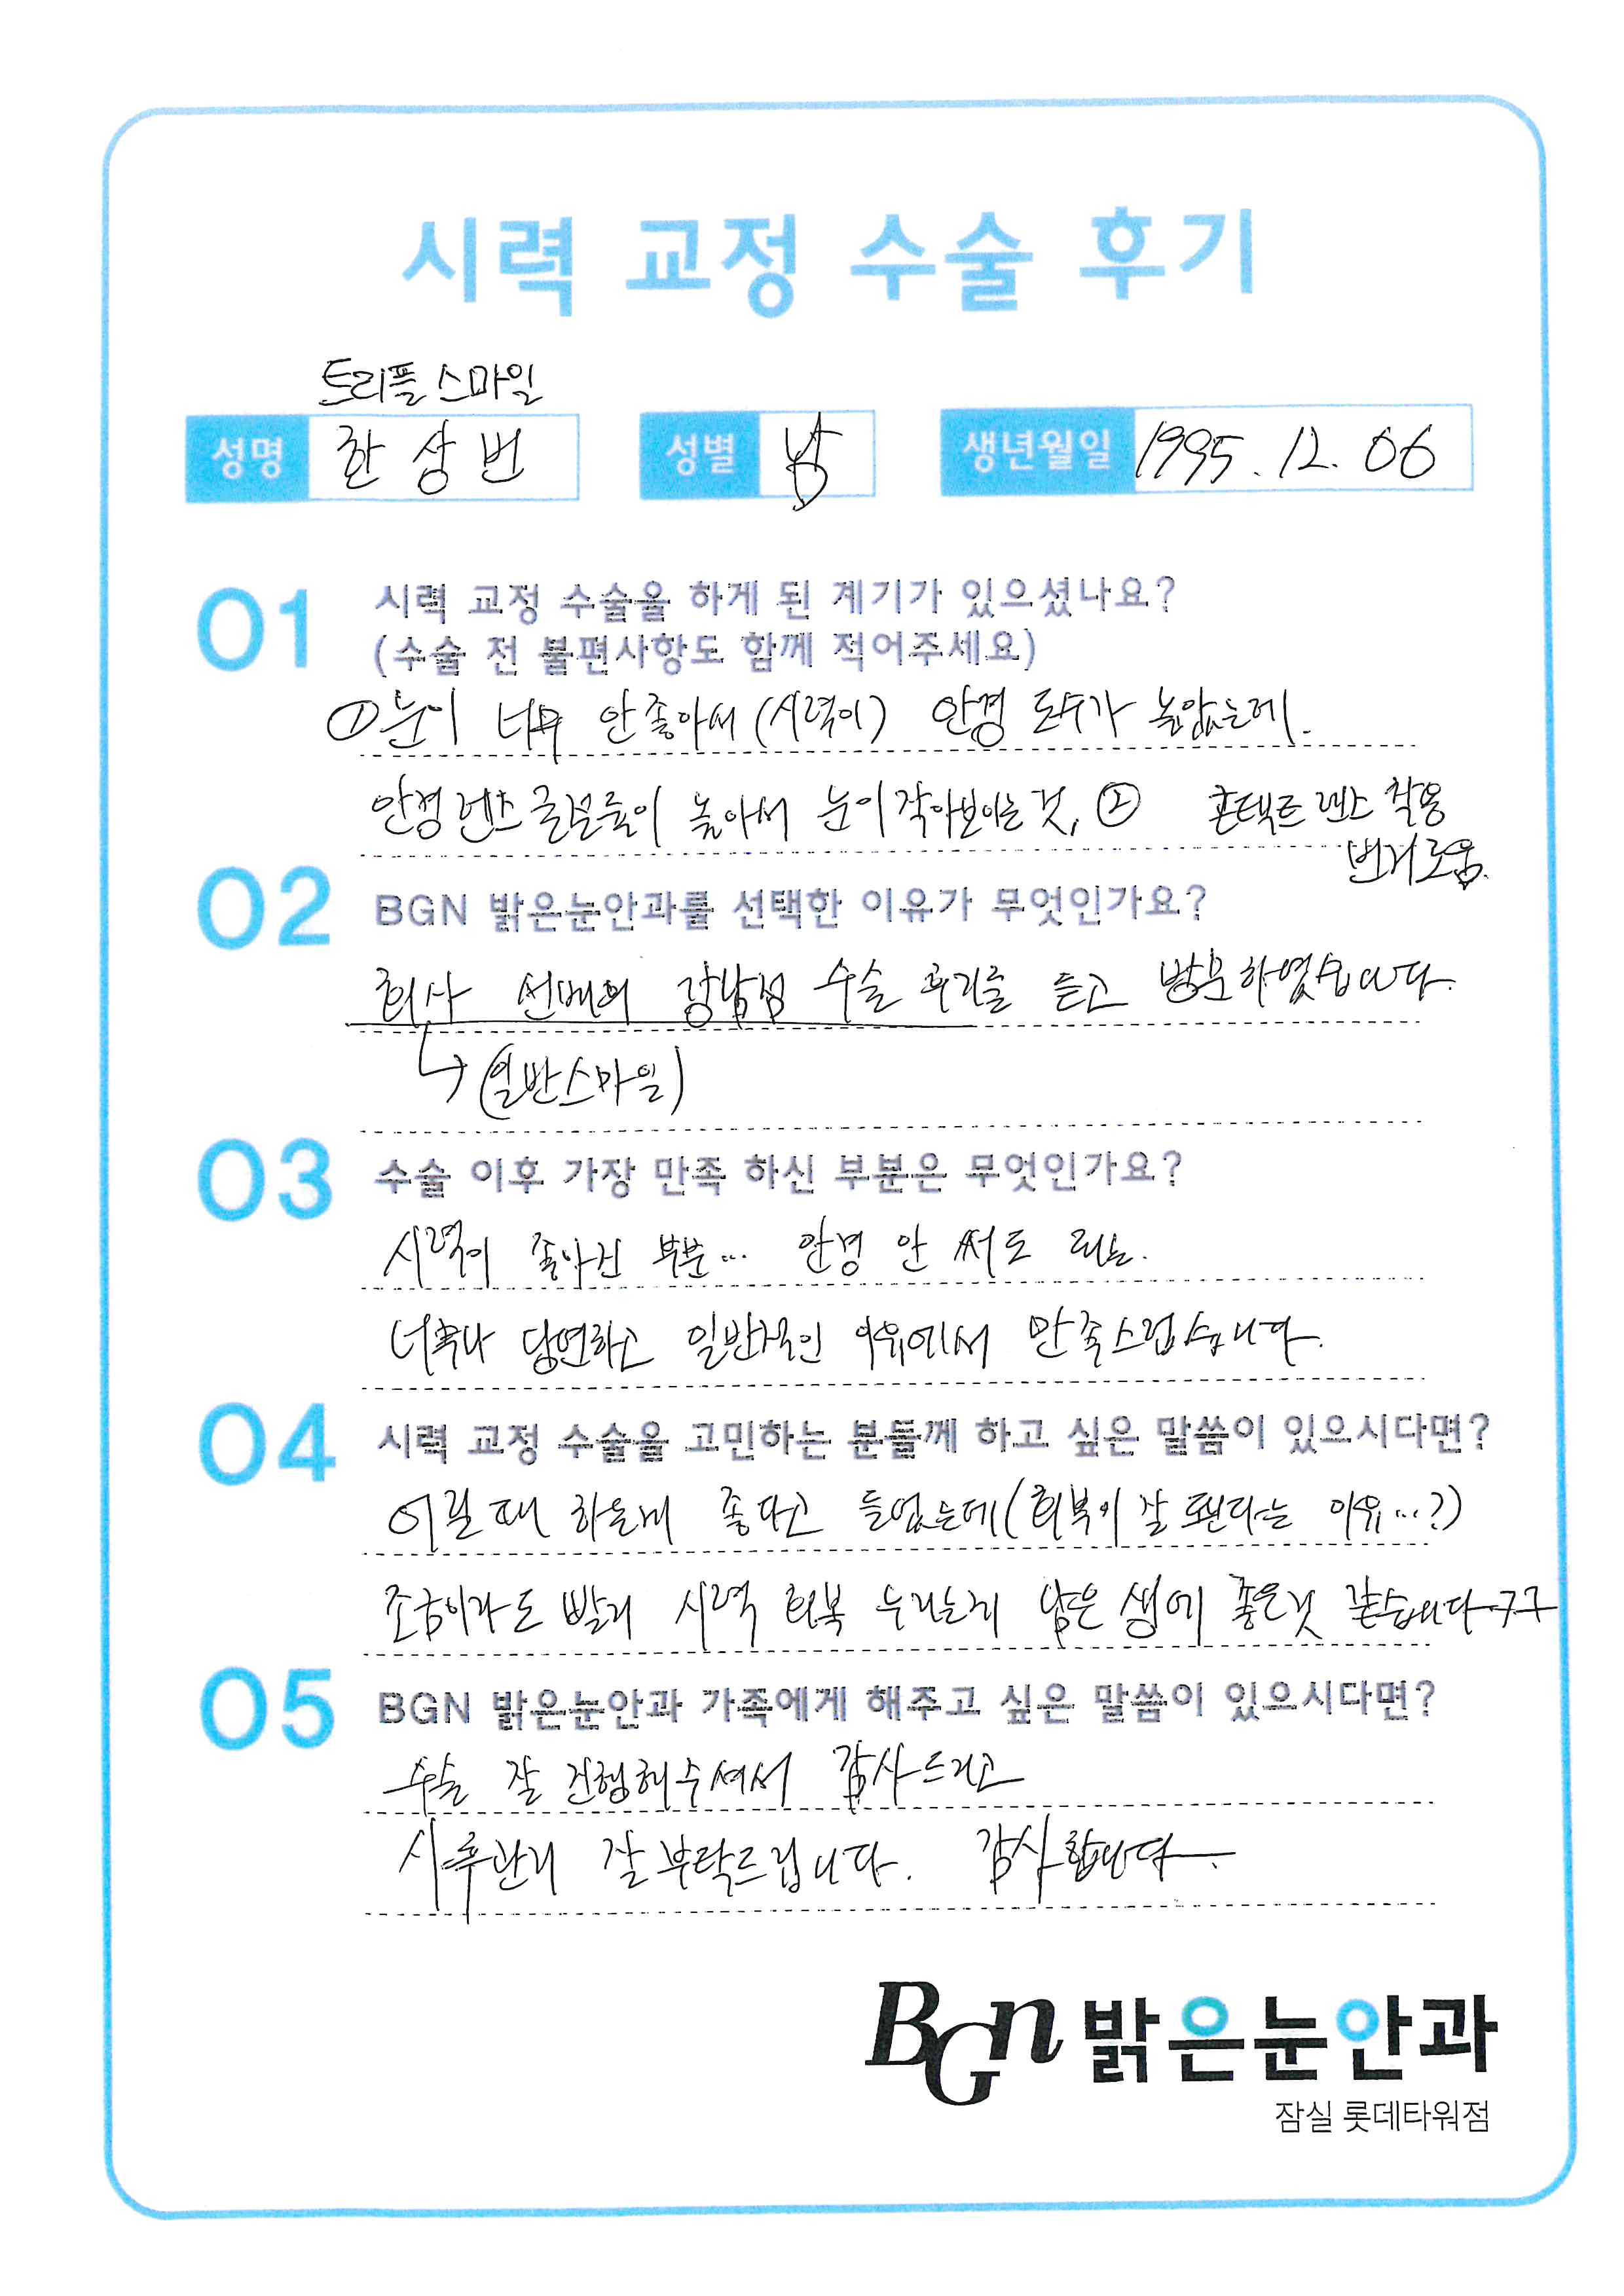 시력 교정 수술 후기
트리플 스마일
성명 한상번 성별 남 생년월일 1995. 12. 06
01 시력 교정 수술을 하게 된 계기가 있으셨나요?
(수술 전 불편사항도 함께 적어주세요)
① 눈이 너무 안좋아서 (시력이) 안경 도수가 높았는데.
안경 렌즈 굴절률이 높아서 눈이 작아보이는 것, ② 콘택트 렌즈 착용
번거로움.
02 BGN 밝은눈안과를 선택한 이유가 무엇인가요?
회사 선배의 강남점 수술 후기를 듣고 방문하였습니다.
↳ (일반스마일)
03 수술 이후 가장 만족 하신 부분은 무엇인가요?
시력이 좋아진 부분... 안경 안 써도 되는.
너무나 당연하고 일반적인 이유에서 만족스럽습니다.
04 시력 교정 수술을 고민하는 분들께 하고 싶은 말씀이 있으시다면?
어릴 때 하는게 좋다고 들었는데 (회복이 잘 된다는 이유...?)
조금이라도 빨리 시력 회복 누리는게 남은 생에 좋은것 같습니다ㅋㅋ
05 BGN 밝은눈안과 가족에게 해주고 싶은 말씀이 있으시다면?
수술 잘 진행해주셔서 감사드리고
사후관리 잘 부탁드립니다. 감사합니다.
BGn 밝은눈안과
잠실 롯데타워점